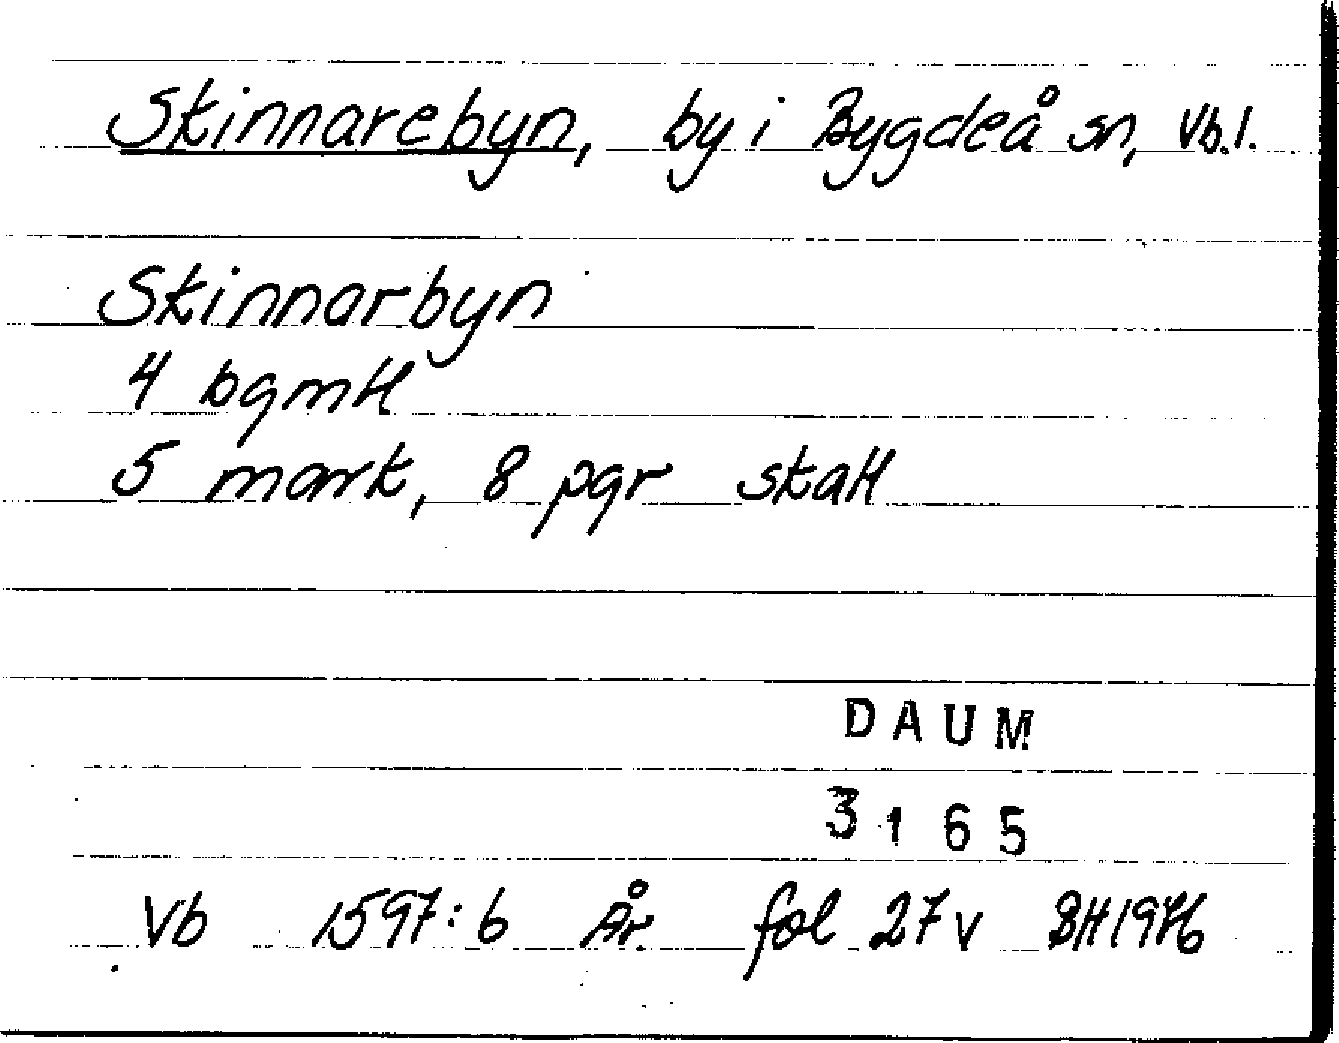 Skinnarebyn, by i Bygdeå sn, Vb.l.
Skinnarbyn
4 bgmH
5 mark, 8 pgr skatt
DAUM
3165
Vb 1597:6 År fol 27v BH1976